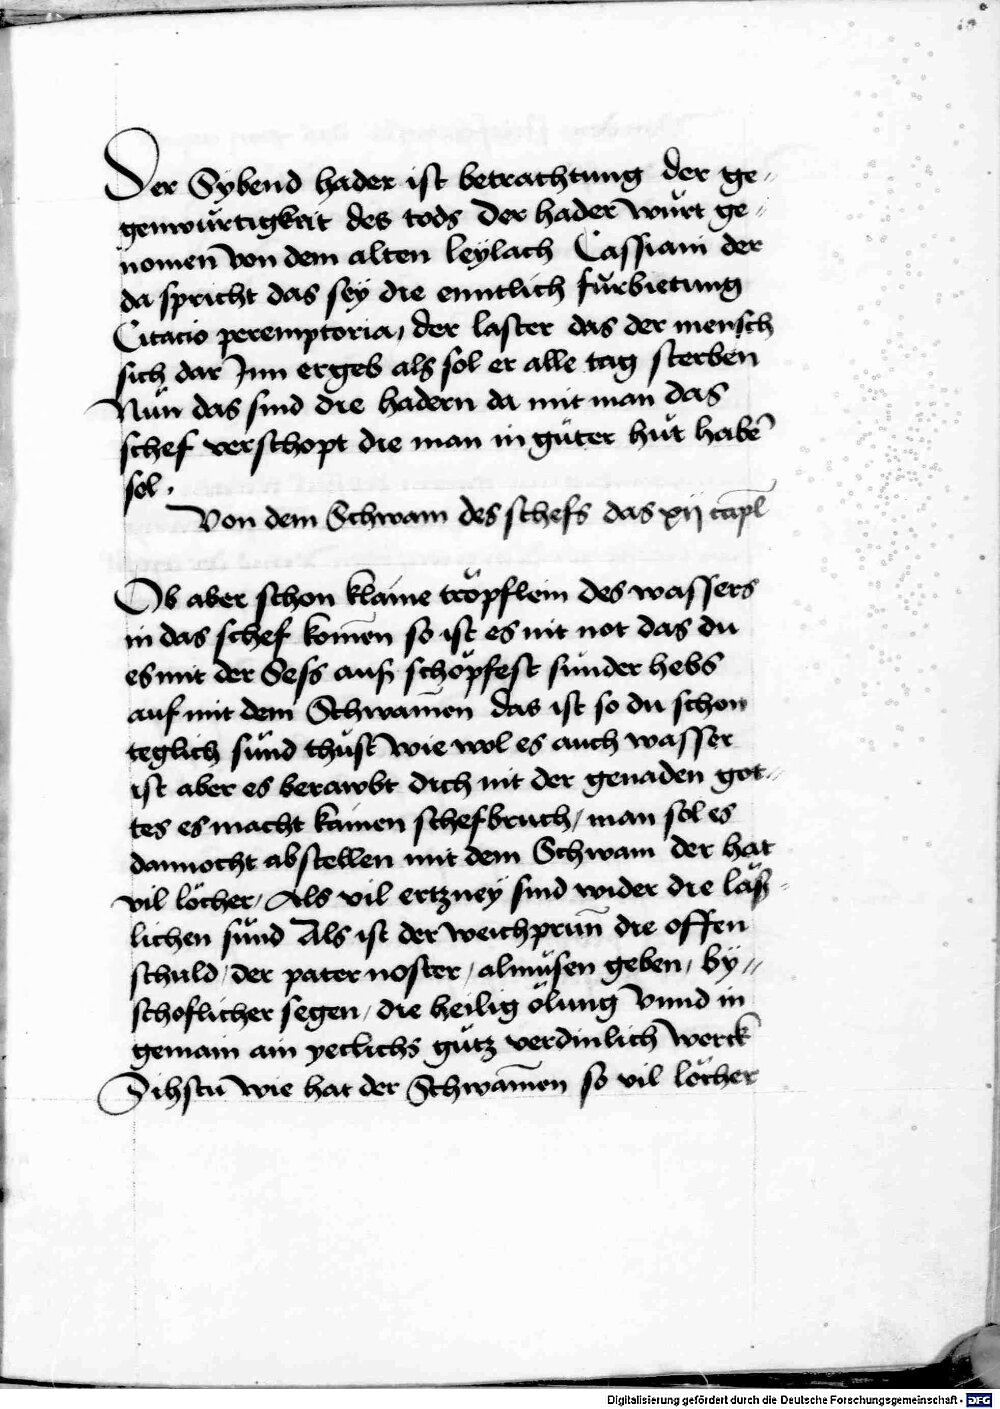 Der Sybend hader ist betrachtung der ge⸗
genwu̔rtigkait des tods Der hader wu̔rt ge⸗
nomen von dem alten leylach Cassiani der
da spricht das sey die enntlich fu̔rbietung
Citacio peremptoria, der laster das der mensch
sich dar Jnn ergeb als sol er alle tag sterben
Nŭn das sind die hadern da mit man das
schef verschopt die man in gŭter hŭt habē
sol.
Von dem Schwam des schefs das xij capl̄
Ob aber schon klaine tröpflein des wassers
in das schef kom̄en so ist es nit not das du
es mit der Sess auß schöpfest sŭnder hebs
auf mit dem Schwam̄en das ist so du schon
teglich sünd thŭst wie wol es auch wasser
ist aber es berawbt dich nit der genaden got⸗
tes es macht kainen schefbruch, man sol es
dannocht abstellen mit dem Schwam der hat
vil löcher, Als vil ertzney sind wider die läß⸗
lichen sünd Als ist der weichprun̄ die offen
schuld, der pater noster, almŭsen geben, by⸗
schoflicher segen, die heilig ölung vnnd in
gemain ain yeclichs gŭtz verdinlich werck
Sihstu wie hat der Schwam̄en so vil löcher
Digitalisierung gefördert durch die Deutsche Forschungsgemeinschaft - DFG